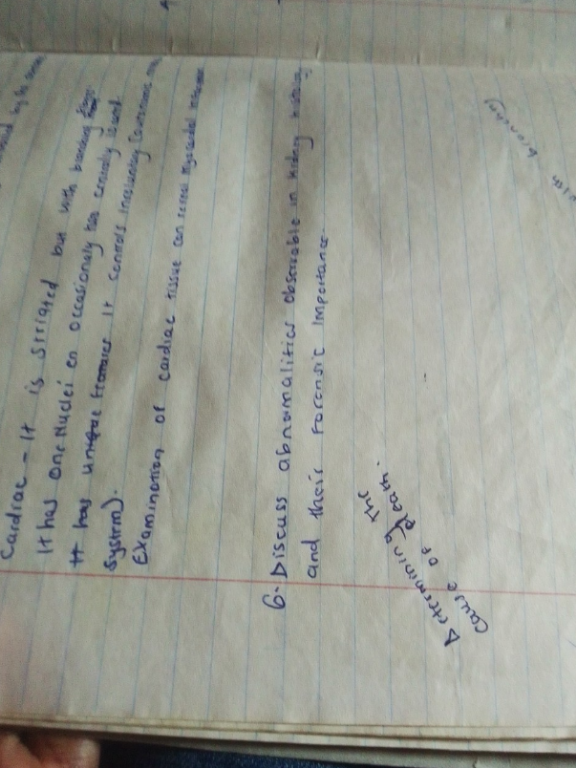 Cardiac - It is striated but with branching
It has one Nuclei en occasionally two centrally located
It has unique features It controls involuntary (
system).
Examination of cardiac tissue can reveal myocardial
6. Discuss abnormalities observable in kidney histology
and their Forensic Importance.
Determining the
cause of death.